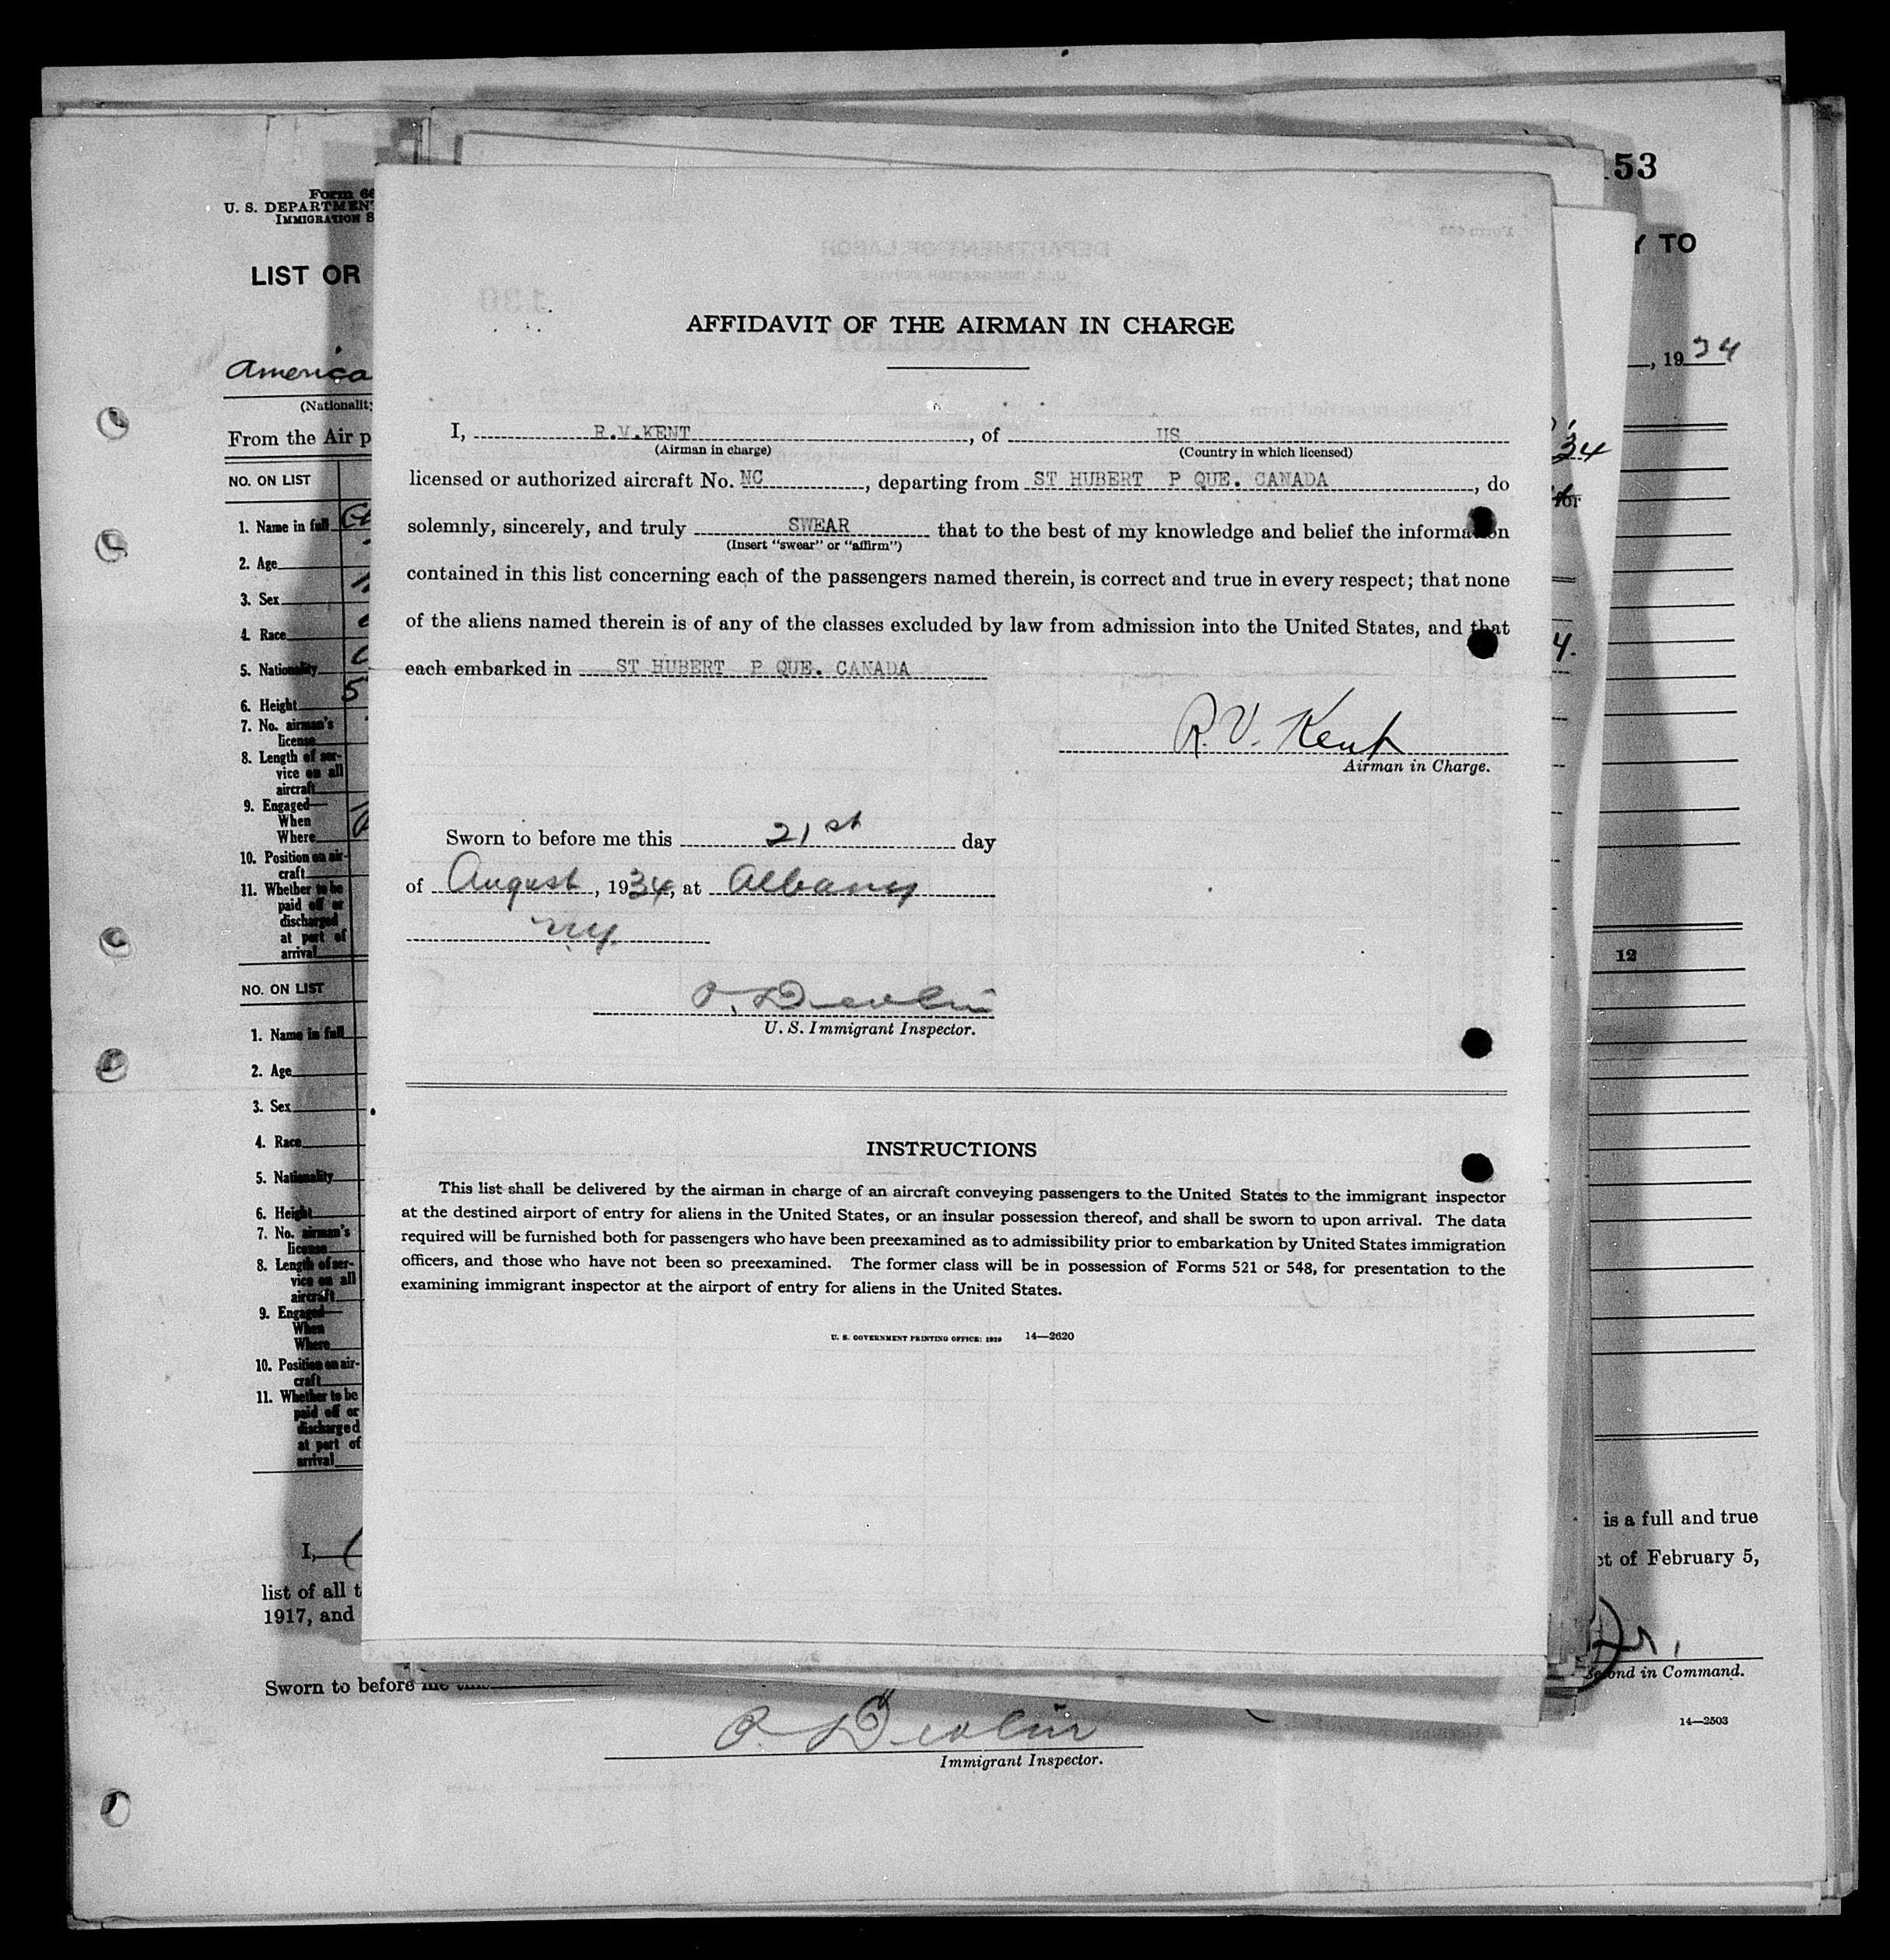 Form 66
U. S. DEPARTMENT
IMMIGRATION S
53
Y TO
LIST OR
America
(Nationality
, 1934
From the Air p
AFFIDAVIT OF THE AIRMAN IN CHARGE
I, R.V.KENT, of US
(Airman in charge) (Country in which licensed)
licensed or authorized aircraft No. NC, departing from ST HUBERT P QUE. CANADA, do
solemnly, sincerely, and truly SWEAR that to the best of my knowledge and belief the information
(Insert "swear" or "affirm")
contained in this list concerning each of the passengers named therein, is correct and true in every respect; that none
of the aliens named therein is of any of the classes excluded by law from admission into the United States, and that
each embarked in ST HUBERT P QUE. CANADA
R. V. Kent
Airman in Charge.
Sworn to before me this 21st day
of August, 1934, at Albany
NY.
P. Devlin
U. S. Immigrant Inspector.
INSTRUCTIONS
This list shall be delivered by the airman in charge of an aircraft conveying passengers to the United States to the immigrant inspector
at the destined airport of entry for aliens in the United States, or an insular possession thereof, and shall be sworn to upon arrival. The data
required will be furnished both for passengers who have been preexamined as to admissibility prior to embarkation by United States immigration
officers, and those who have not been so preexamined. The former class will be in possession of Forms 521 or 548, for presentation to the
examining immigrant inspector at the airport of entry for aliens in the United States.
U. S. GOVERNMENT PRINTING OFFICE: 1929 14—2620
NO. ON LIST
1. Name in full
2. Age
3. Sex
4. Race
5. Nationality
6. Height
7. No. airman's
license
8. Length of ser-
vice on all
aircraft
9. Engaged—
When
Where
10. Position on air-
craft
11. Whether to be
paid off or
discharged
at port of
arrival
34
4.
12
NO. ON LIST
1. Name in full
2. Age
3. Sex
4. Race
5. Nationality
6. Height
7. No. airman's
license
8. Length of ser-
vice on all
aircraft
9. Engaged—
When
Where
10. Position on air-
craft
11. Whether to be
paid off or
discharged
at port of
arrival
I,
is a full and true
list of all t
ct of February 5,
1917, and
Jr.
Second in Command.
Sworn to before me this
P. Devlin
Immigrant Inspector.
14—2503